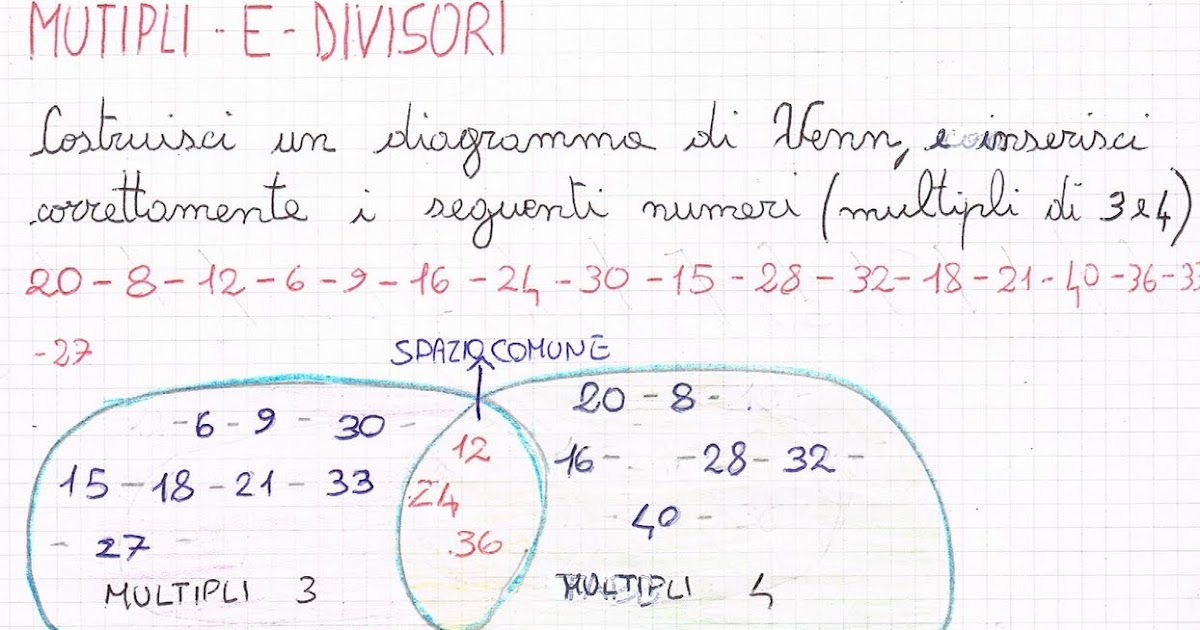 MUTIPLI - E - DIVISORI
Costruisci un diagramma di Venn, e inserisci
correttamente i seguenti numeri (multipli di 3 e 4)
20 - 8 - 12 - 6 - 9 - 16 - 24 - 30 - 15 - 28 - 32 - 18 - 21 - 40 - 36 - 33
- 27
SPAZIO COMUNE
- 6 - 9 - 30 -
15 - 18 - 21 - 33
- 27 -
MULTIPLI 3
12
24
36
20 - 8 -
16 - - 28 - 32 -
- 40 -
MULTIPLI 4